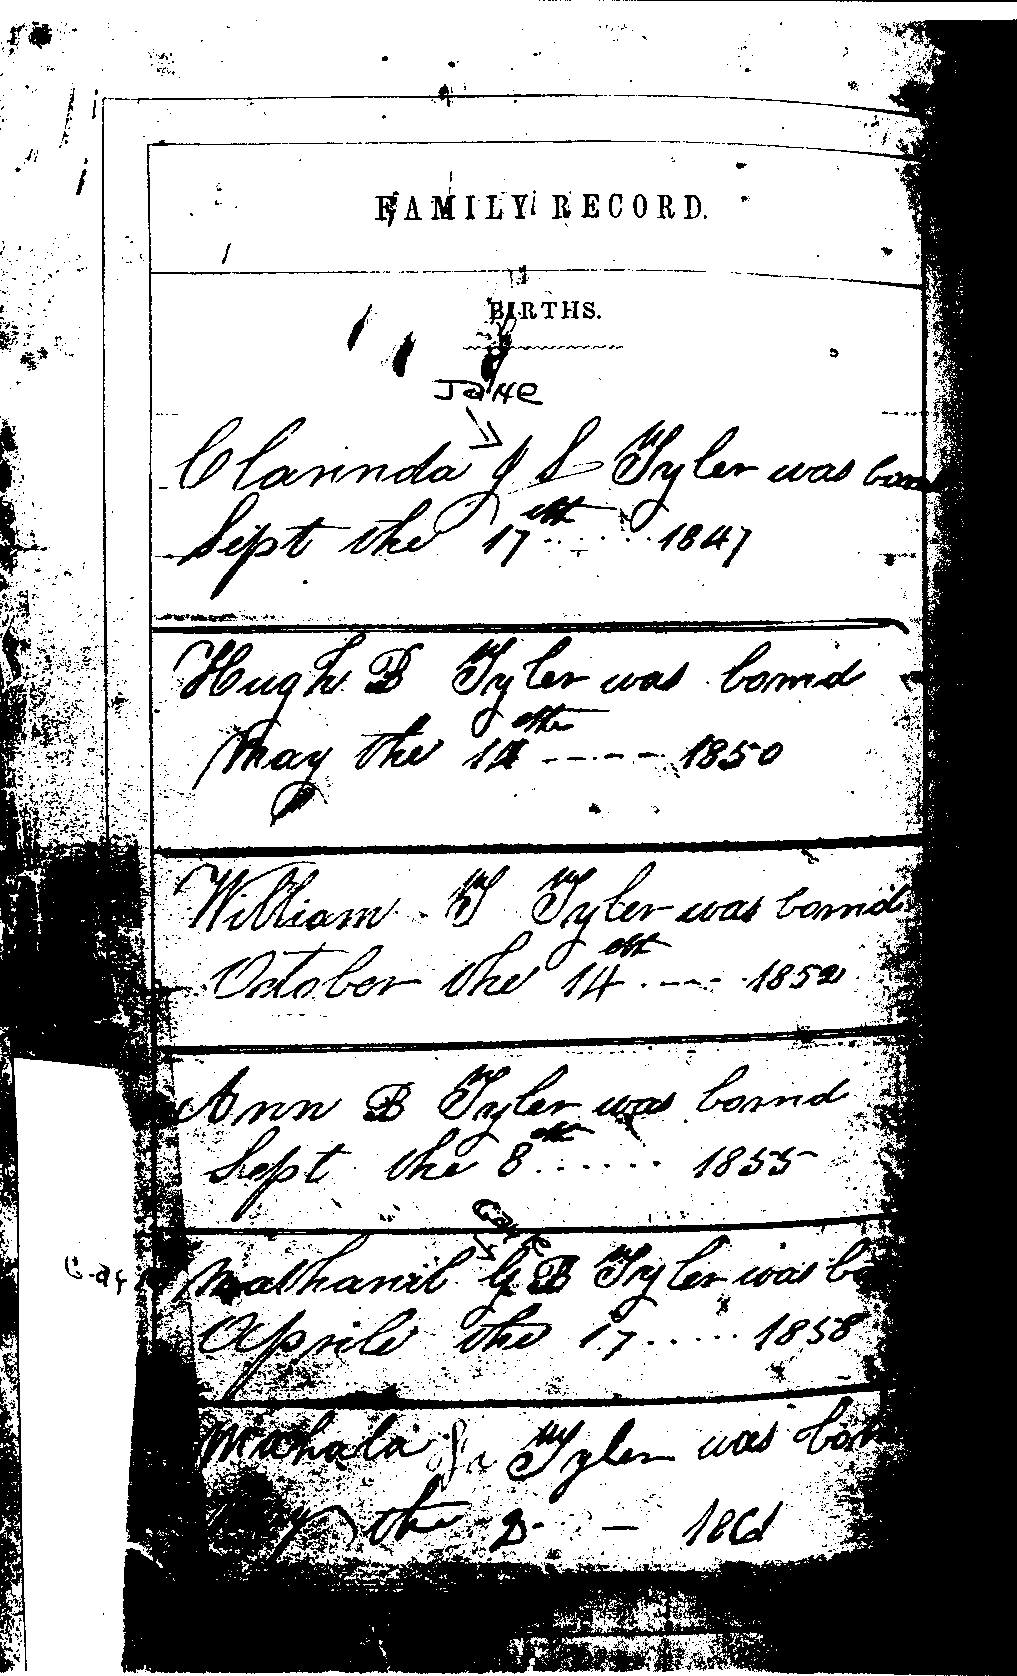 FAMILY RECORD.
BIRTHS.
Jane
Clarinda J S Tyler was born
Sept the 17th 1847
Hugh B Tyler was bornd
May the 14th ---- 1850
William T Tyler was bornd
October the 14th ---- 1852
Ann B Tyler was bornd
Sept the 8th ...... 1855
Mathanil G B Tyler was bo
Aprile the 17 ..... 1858
Mahala Tyler was born
May the 2 - 1861